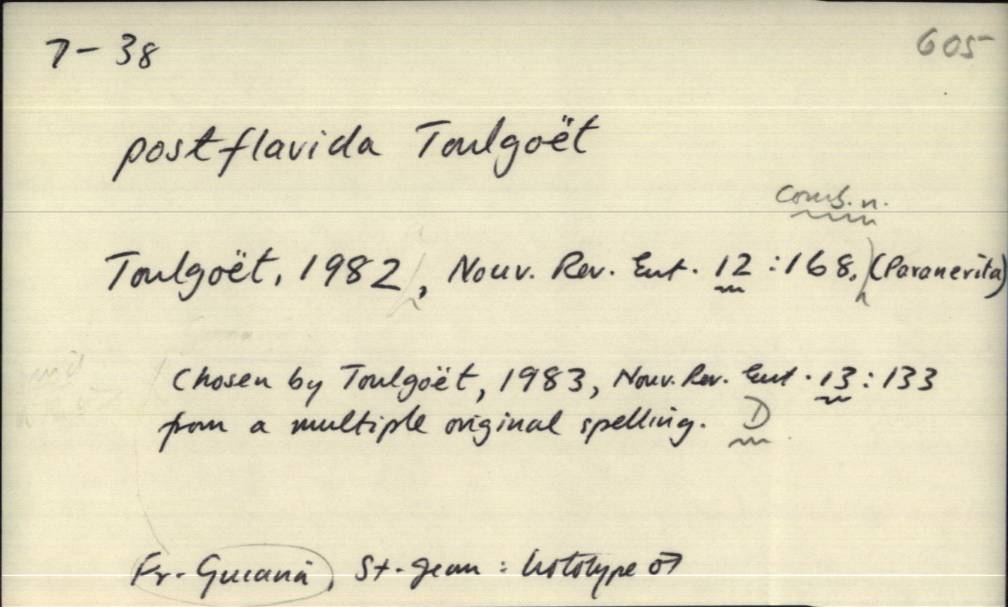 7-38 605
postflavida Toulgoët
Comb. n.
Toulgoët, 1982, Nouv. Rev. Ent. 12 : 168, (Paranerita)
Chosen by Toulgoët, 1983, Nouv. Rev. Ent. 13 : 133
from a multiple original spelling. D
Fr. Guiana, St. Jean : holotype ♂